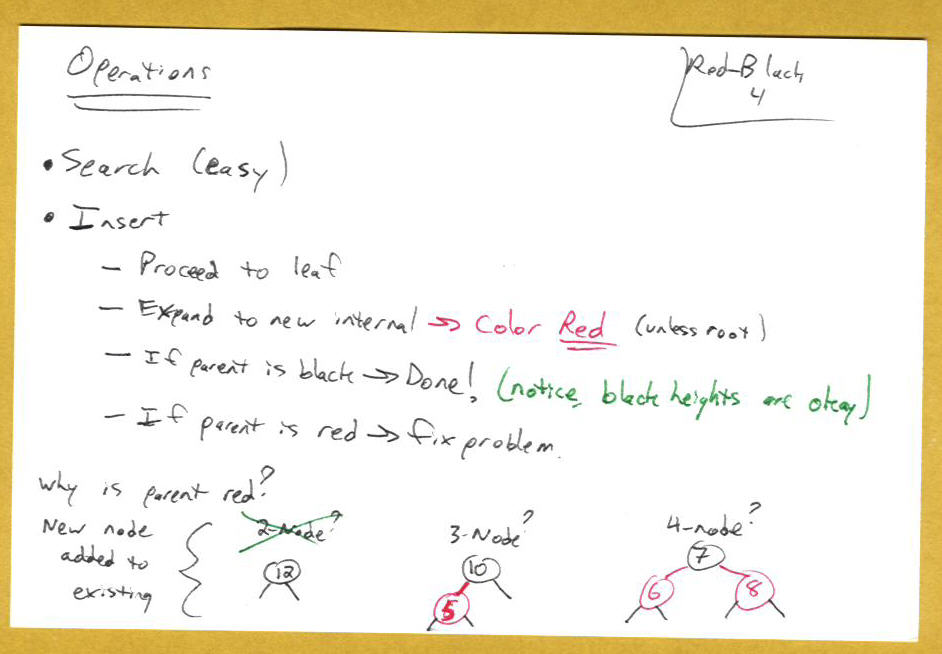 Operations
Red-Black
4
• Search (easy)
• Insert
– Proceed to leaf
– Expand to new internal ->> Color Red (unless root)
– If parent is black ->> Done! (notice, black heights are okay)
– If parent is red ->> fix problem.
Why is parent red?
New node
added to
existing
2-Node?
12
3-Node?
10
5
4-node?
7
6
8